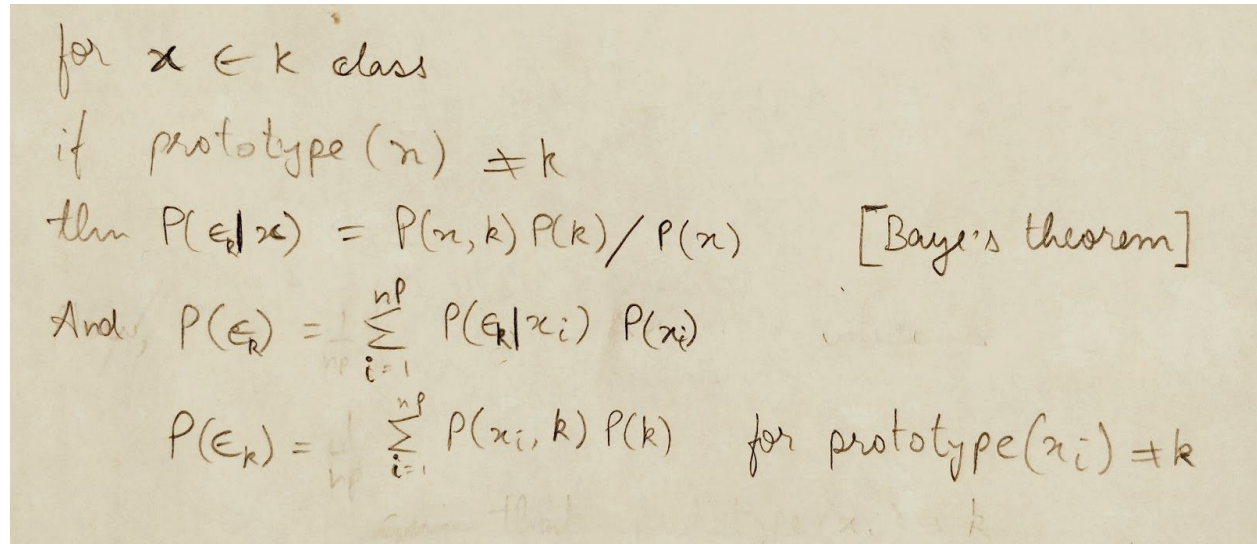 for x ∈ k class
if prototype (x) ≠ k
then P(ϵ_k|x) = P(x, k) P(k) / P(x) [Baye's theorem]
And P(ϵ_k) = ∑_{i=1}^{nP} P(ϵ_k|x_i) P(x_i)
P(ϵ_k) = ∑_{i=1}^{nP} P(x_i, k) P(k) for prototype(x_i) ≠ k